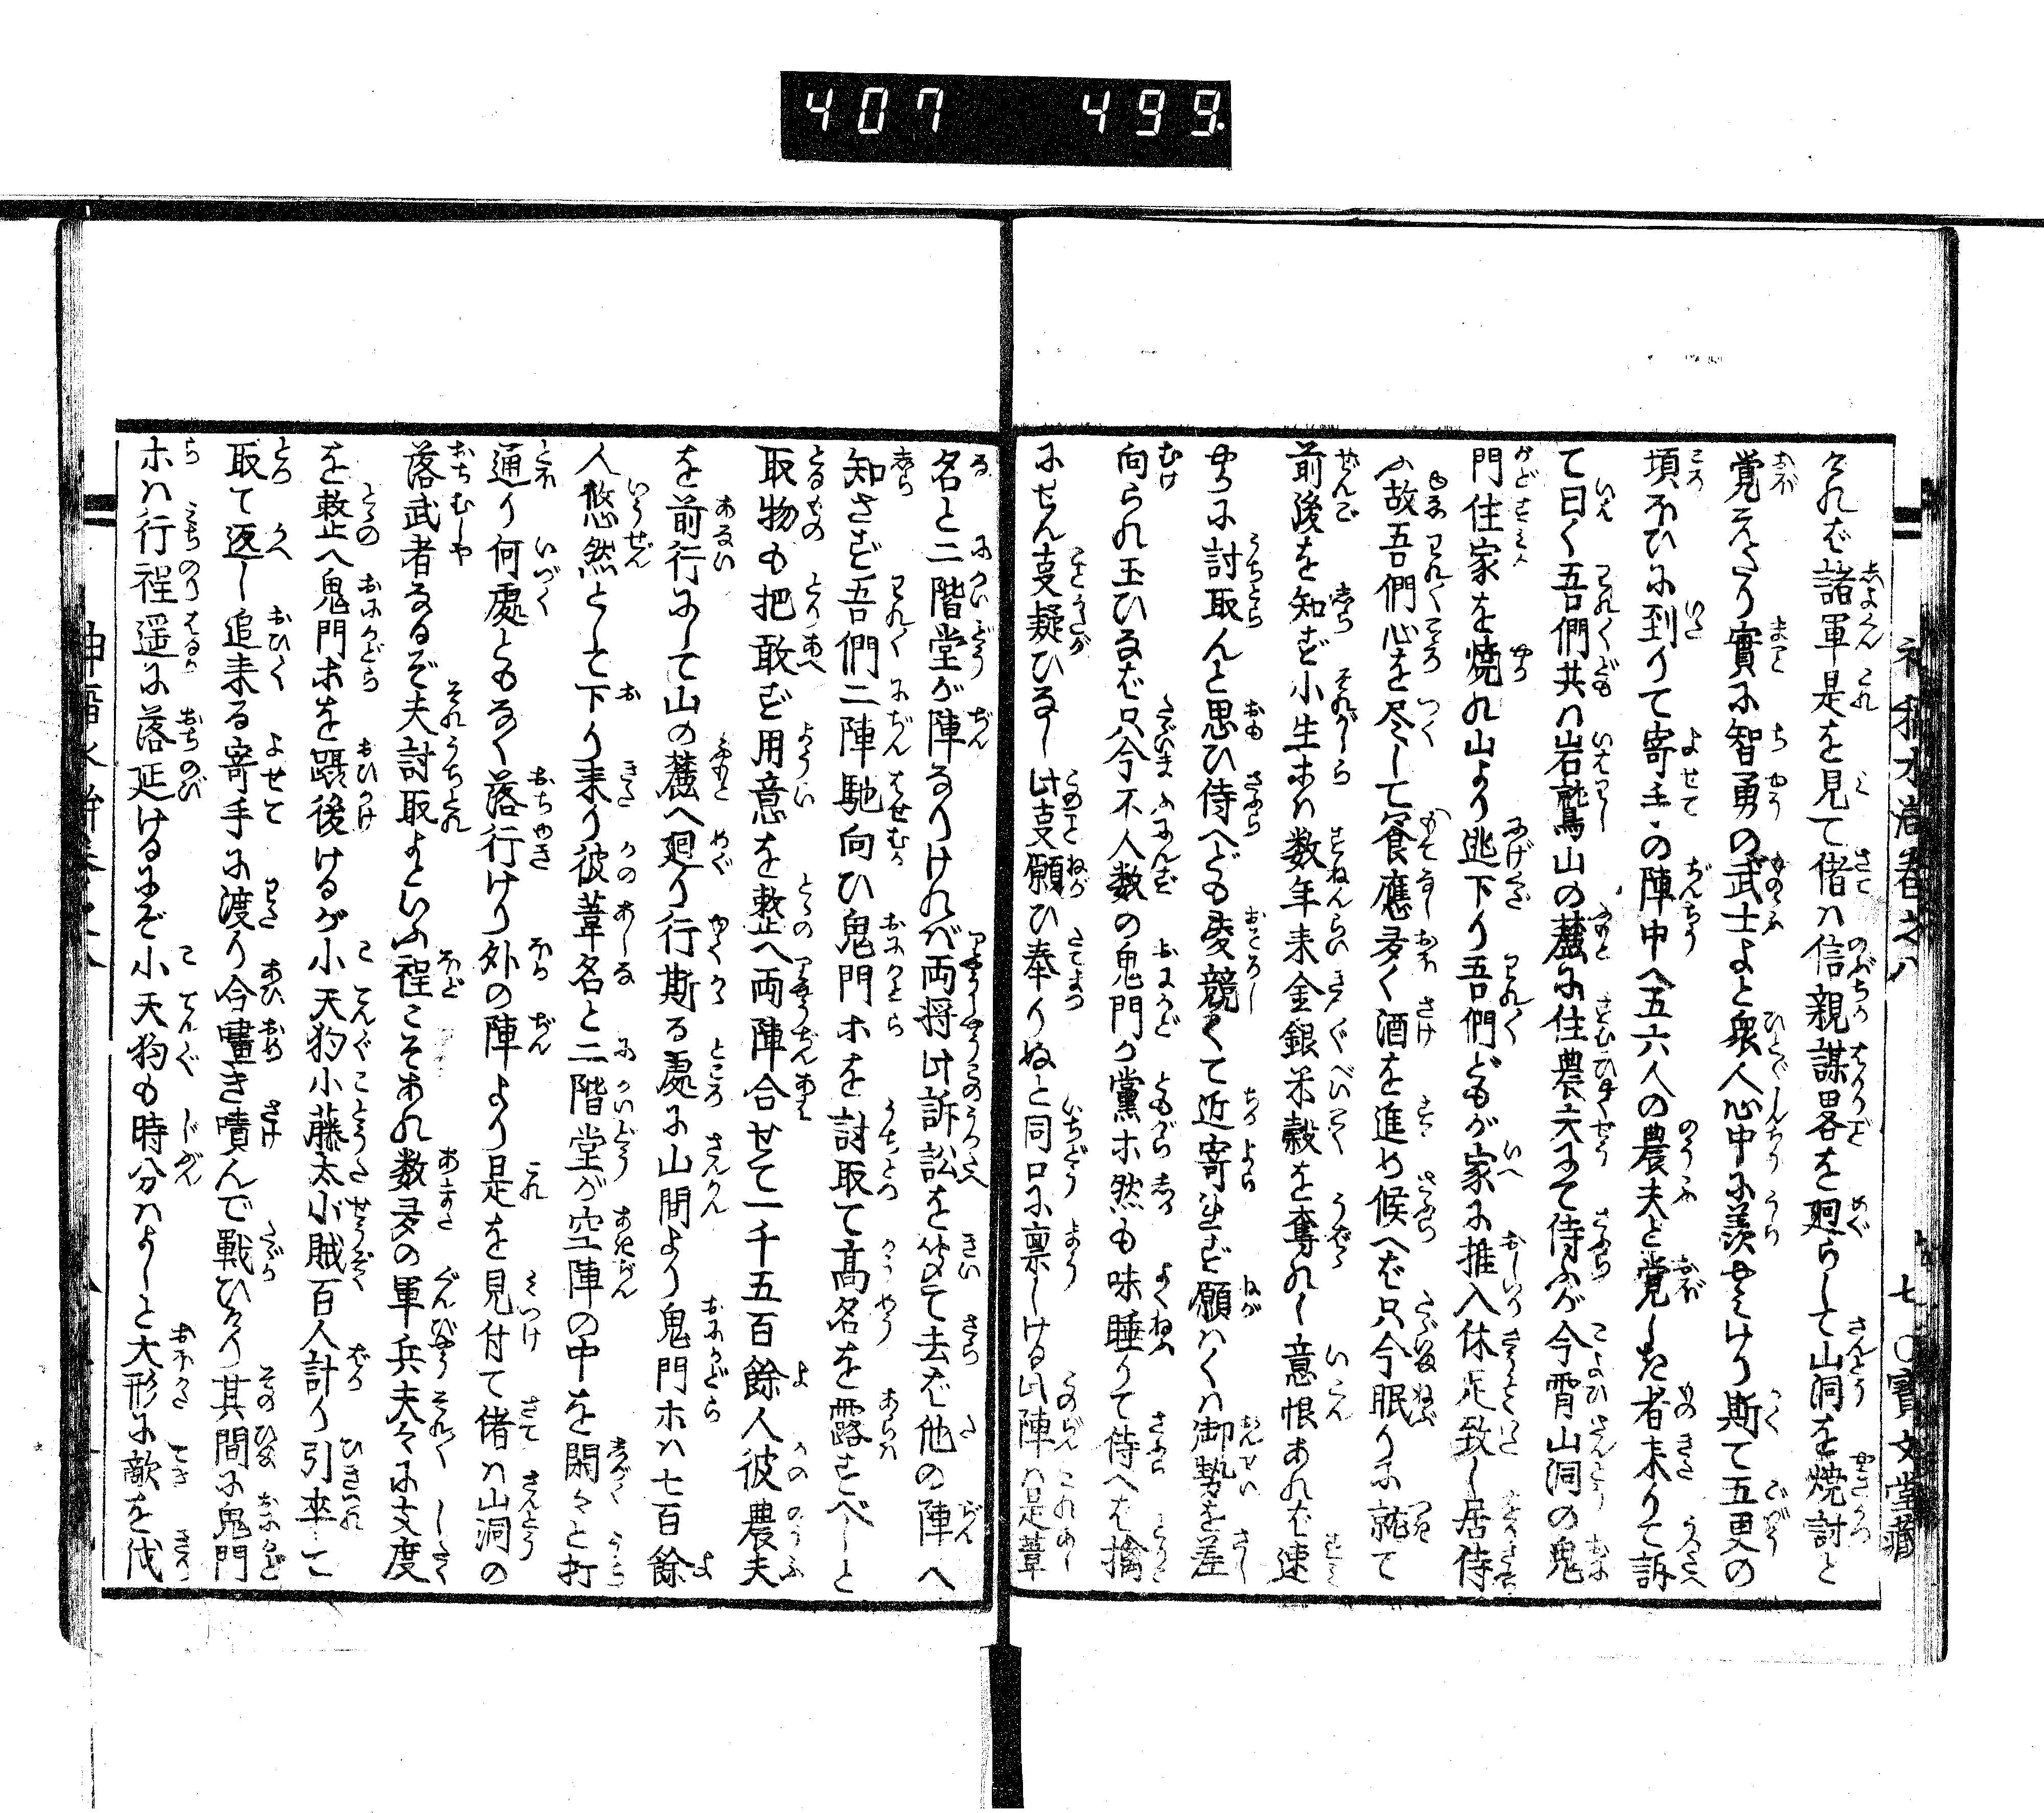 407 499.
七〇寳文堂藏
られバ諸軍是を見て偖ハ信親謀畧を廻らして山洞を焼討と
覚えたり實に智勇の武士よと衆人心中に羨やミけり斯て五更の
頃ほひに到りて寄手の陣中へ五六人の農夫と覚しき者来りて訴
て曰く吾們共ハ岩鷲山の麓に住農夫にて侍ふが今宵山洞の鬼
門住家を焼れ山より逃下り吾們どもが家に推入休足致し居侍
ふ故吾們心を尽して饗應多く酒を進め候へば只今眠りに就て
前後を知ず小生ホハ数年来金銀米穀を奪れし意恨あれば速
やかに討取んと思ひ侍へども変競くて近寄出ず願ハくハ御勢を差
向られ玉ひなば只今不人数の鬼門が黨ホ然も味睡りて侍へば擒
にせん叓疑ひなし此叓願ひ奉りぬと同口に稟しける此陣ハ是葦
名と二階堂が陣なりけれバ両将此訴訟を聞て去ば他の陣へ
知さず吾們二陣馳向ひ鬼門ホを討取て高名を露すべしと
取物も把敢ず用意を整へ両陣合せて一千五百餘人彼農夫
を前行にして山の麓へ廻り行斯る處に山間より鬼門ホハ七百餘
人悠然として下り来り彼葦名と二階堂が空陣の中を閑々と打
通り何處ともなく落行けり外の陣より是を見付て偖ハ山洞の
落武者なるぞ夫討取よといふ程こそあれ数多の軍兵夫々に支度
を整へ鬼門ホを跟後けるが小天狗小藤太小賊百人計り引率して
取て返し追来る寄手に渡り合囁き噴んで戦ひたり其間に鬼門
ホハ行程遥に落延けるにぞ小天狗も時分ハよしと大形に敵を伐